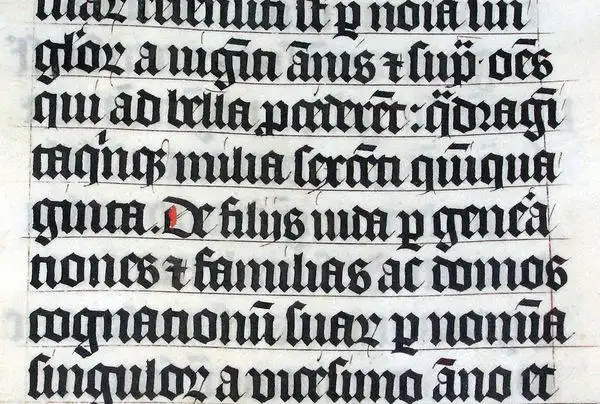 suaꝝ recensiti sūt ꝑ noīa sin
gl̄oꝝ a uigīti ānis ⁊ sup̄· oēs
qui ad bella ꝓcederēt: qᷓdragī
taqͥnqꝫ milia sexcēti quīqua
ginta. De filijs iuda ꝑ gene᷑a
tiones ⁊ familias ac domos
cognationū suaꝝ ꝑ nomīa
singuloꝝ a vicesimo āno et